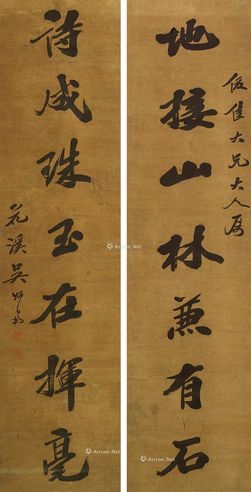 地接山林兼有石
俊佳大兄大人屬
詩成珠玉在揮毫
花溪吳
Artron.Net
Artron.Net
Artron.Net
Artron.Net